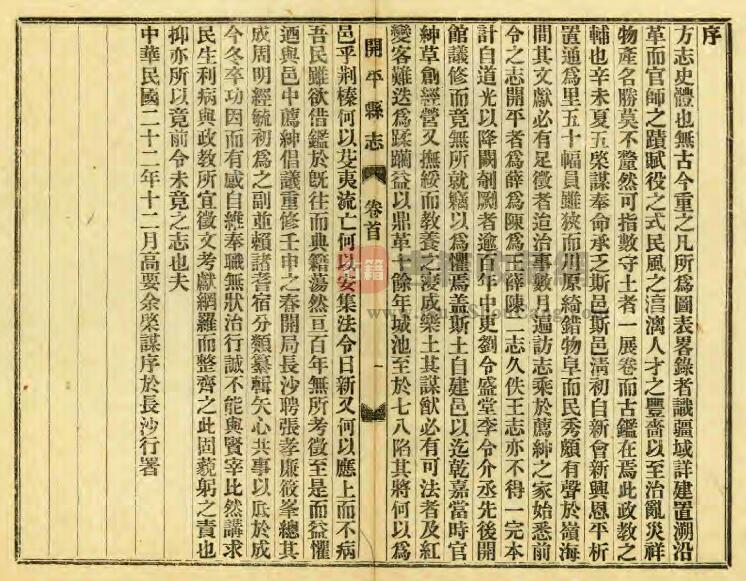 序
方志史體也無古今重之凡所爲圖表畧錄者識疆域詳建置溯沿
革而官師之蹟賦役之式民風之淳漓人才之豐嗇以至治亂災祥
物產名勝莫不釐然可指數守土者一展卷而古鑑在焉此政教之
輔也辛未夏五棨謀奉命承乏斯邑斯邑淸初自新會新興恩平析
置通爲里五十幅員雖狹而川原綺錯物阜而民秀頗有聲於嶺海
間其文獻必有足徵者迨治事數月遍訪志乘於薦紳之家始悉前
令之志開平者爲薛爲陳爲王薛陳二志久佚王志亦不得一完本
計自道光以降闕剞劂者逾百年中更劉令盛堂李令介丞先後開
館議修而竟無所就竊以爲懼焉蓋斯土自建邑以迄乾嘉當時官
紳草創經營又撫綏而教養之浸成樂土其謀猷必有可法者及紅
變客難迭爲蹂躪益以鼎革十餘年城池至於七八陷其將何以爲
開平縣志 卷首 一
邑乎荆榛何以芟夷流亡何以安集法令日新又何以應上而不病
吾民雖欲借鑑於旣往而典籍蕩然亘百年無所考徵至是而益懼
迺與邑中薦紳倡議重修壬申之春開局長沙聘張孝廉筱峯總其
成周明經毓初爲之副並賴諸耆宿分類纂輯矢心共事以厎於成
今冬卒功因而有感自維奉職無狀治行誠不能與賢宰比然講求
民生利病與政教所宜徵文考獻網羅而整齊之此固藐躬之責也
抑亦所以竟前令未竟之志也夫
中華民國二十二年十二月高要余棨謀序於長沙行署